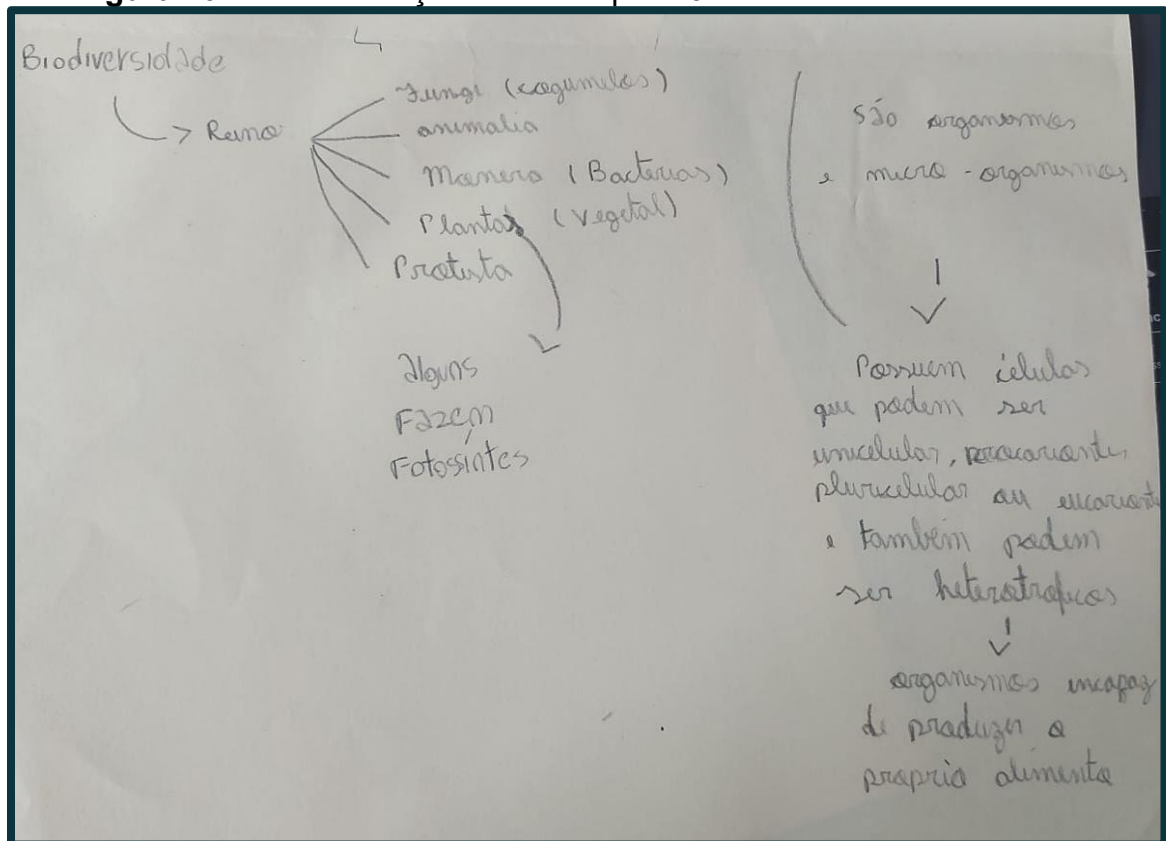 Biodiversidade
Reino
Fungi (cogumelos)
animalia
Monera (Bactérias)
Plantas (vegetal)
Protista
alguns
Fazem
Fotossíntes
são organismos
e micro-organismos
Possuem células
que podem ser
unicelular, procarionte,
pluricelular ou eucarionte
e também podem
ser heterotroficos
organismos incapaz
de produzir o
proprio alimento